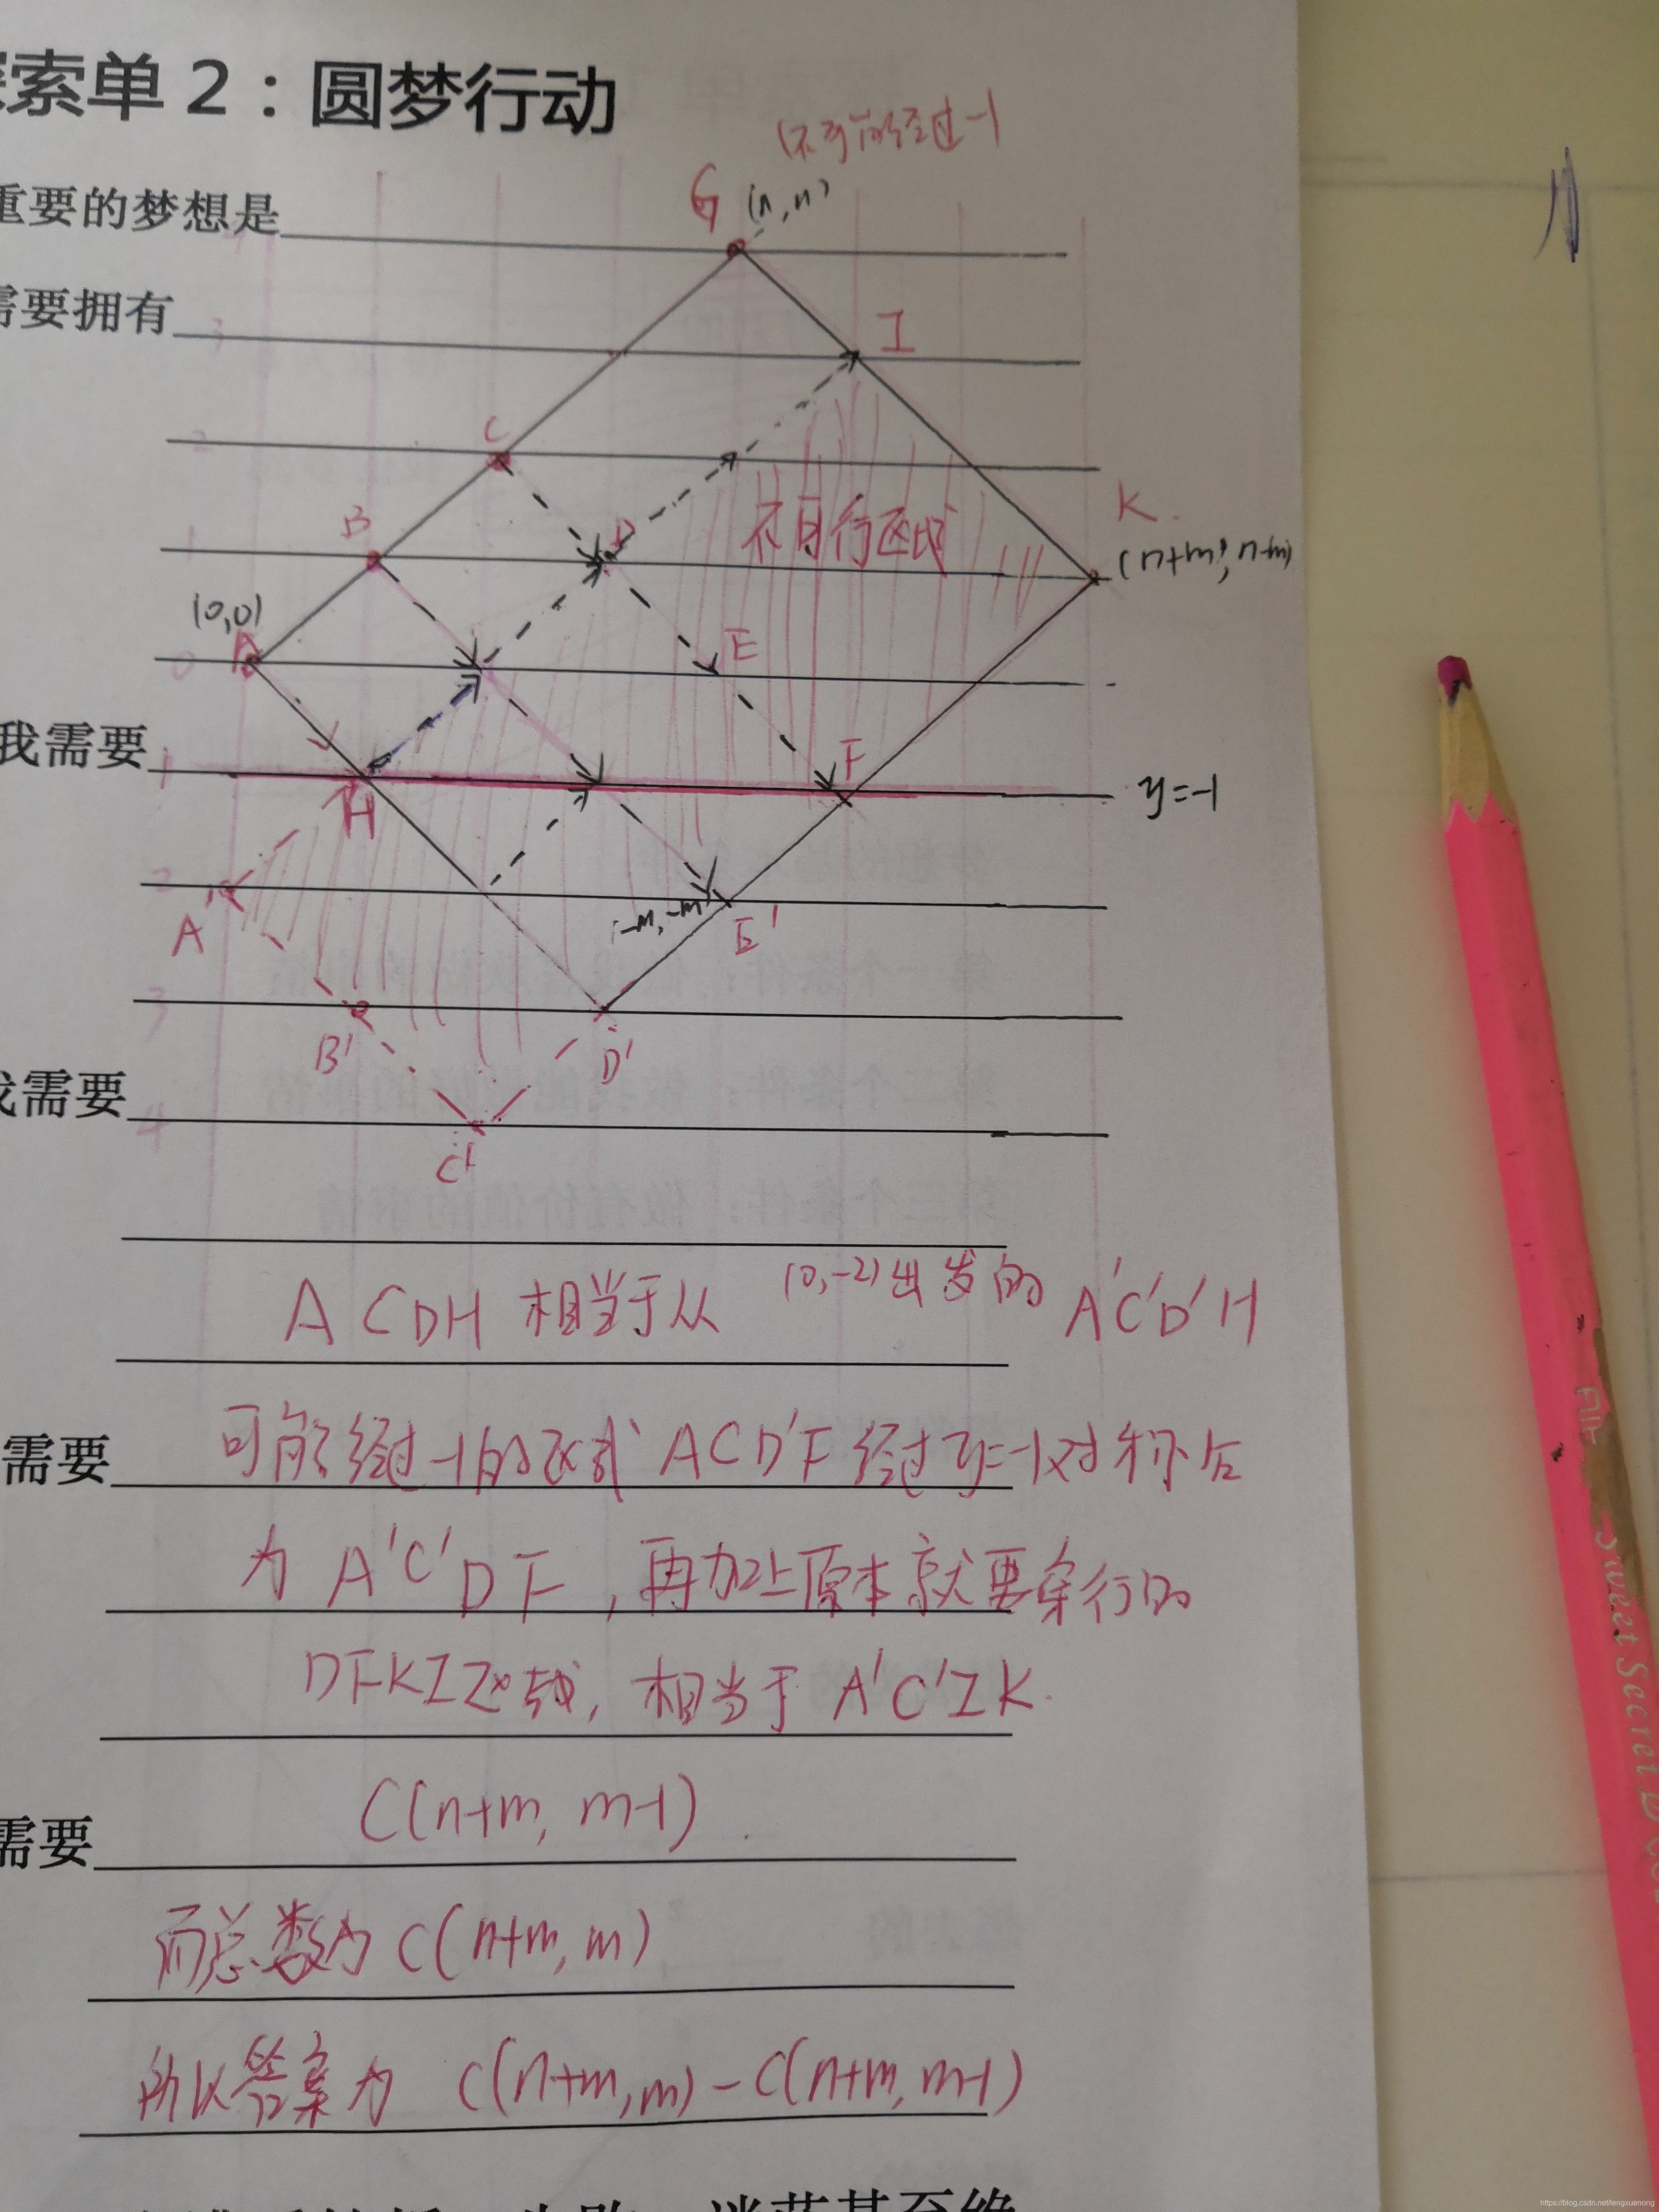 探索单 2：圆梦行动
(不可能经过-1
重要的梦想是
G (n,n)
4
需要拥有
3
I
2
C
K.
1
B
D
不可行区域
(n+m, n-m)
(0,0)
0
A
E
我需要
1
H
F
y=-1
2
A'
(-m,-m)
E'
3
B'
D'
我需要
4
C'
ACDH 相当于从 (0,-2)出发的 A'C'D'H
需要
可能经过-1的区域 ACD'F 经过y=-1对称后
为 A'C'DF，再加上原本就要穿行的
DFKI区域，相当于 A'C'IK.
C(n+m, m-1)
需要
而总数为 C(n+m,m)
所以答案为 C(n+m,m)-C(n+m,m-1)
https://blog.csdn.net/fengxuenong
Sweet Secret